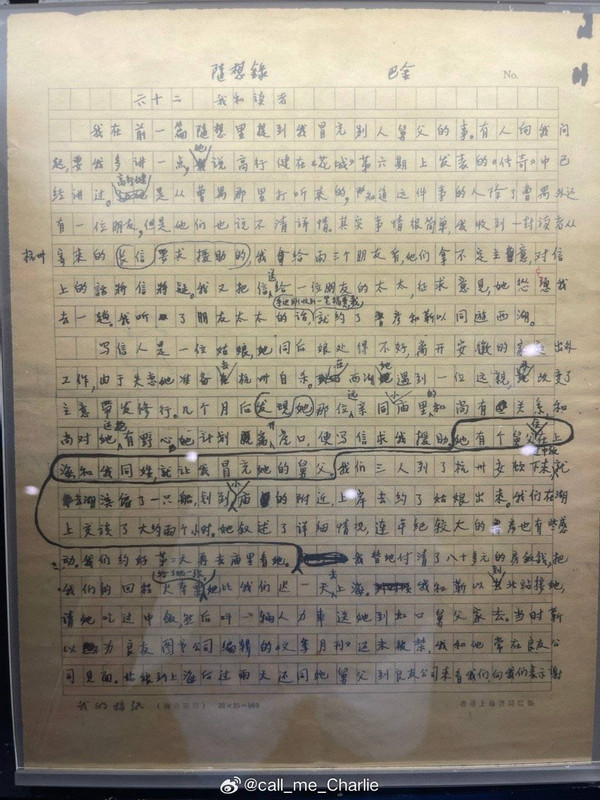 隨想錄 巴金 No.
六十二 我和读者
我在前一篇随想里提到我冒充别人舅父的事。有人向我问
起,要我多讲一点,他说高行健在《花城》第六期上发表的《传奇》中已
经讲过。高行健是从曹禺那里打听来的,知道这件事的人除了曹禺外还
有一位朋友,但是他们也说不清详情。其实事情很简单,我收到一封读者从
杭州寄来的长信要求援助的,我给两三个朋友看,他们拿不定主意,对信
上的話将信将疑。我又把信送给一位朋友的太太,征求意见,她怂恿我
去一趟。我听了朋友太太的话
就约了鲁彦和靳以同遊西湖。
写信人是一位姑娘,她同后娘处得不好,离开安徽的家庭出外
工作,由于失恋她准备去杭州自杀。在西湖她遇到一位远親,改变了
主意,带发修行。几个月后发現她那位远亲同小庙里的和尚有关系,和
尚对她有野心,她计划离开虎口,便写信求我援助。她有个舅父住在上
海和我同姓,就让我冒充她的舅父。我们三人到了杭州安顿下来,就
去湖滨僱了一只船,划到小庙的附近,上岸去约了姑娘出来。我们在湖
上交谈了大约两个小时。她叙述了详细情况,连年纪较大的鲁彦也有些感
动。我们约好第二天再去庙里看她。我替她付清了八十多元的房飯钱,把
我们的回程火车票给她一张,她比我们迟一天去上海。我和靳以到北站接她,
请她吃过中飯然后叫一輛人力車送她到虹口舅父家去。当时靳
以为良友图书公司编輯的《文季月刊》还未被禁,我和他常在良友公
司見面。姑娘到上海后过两天还同她舅父到良友公司来看我们,向我们表示谢
我的稿纸
@call_me_Charlie